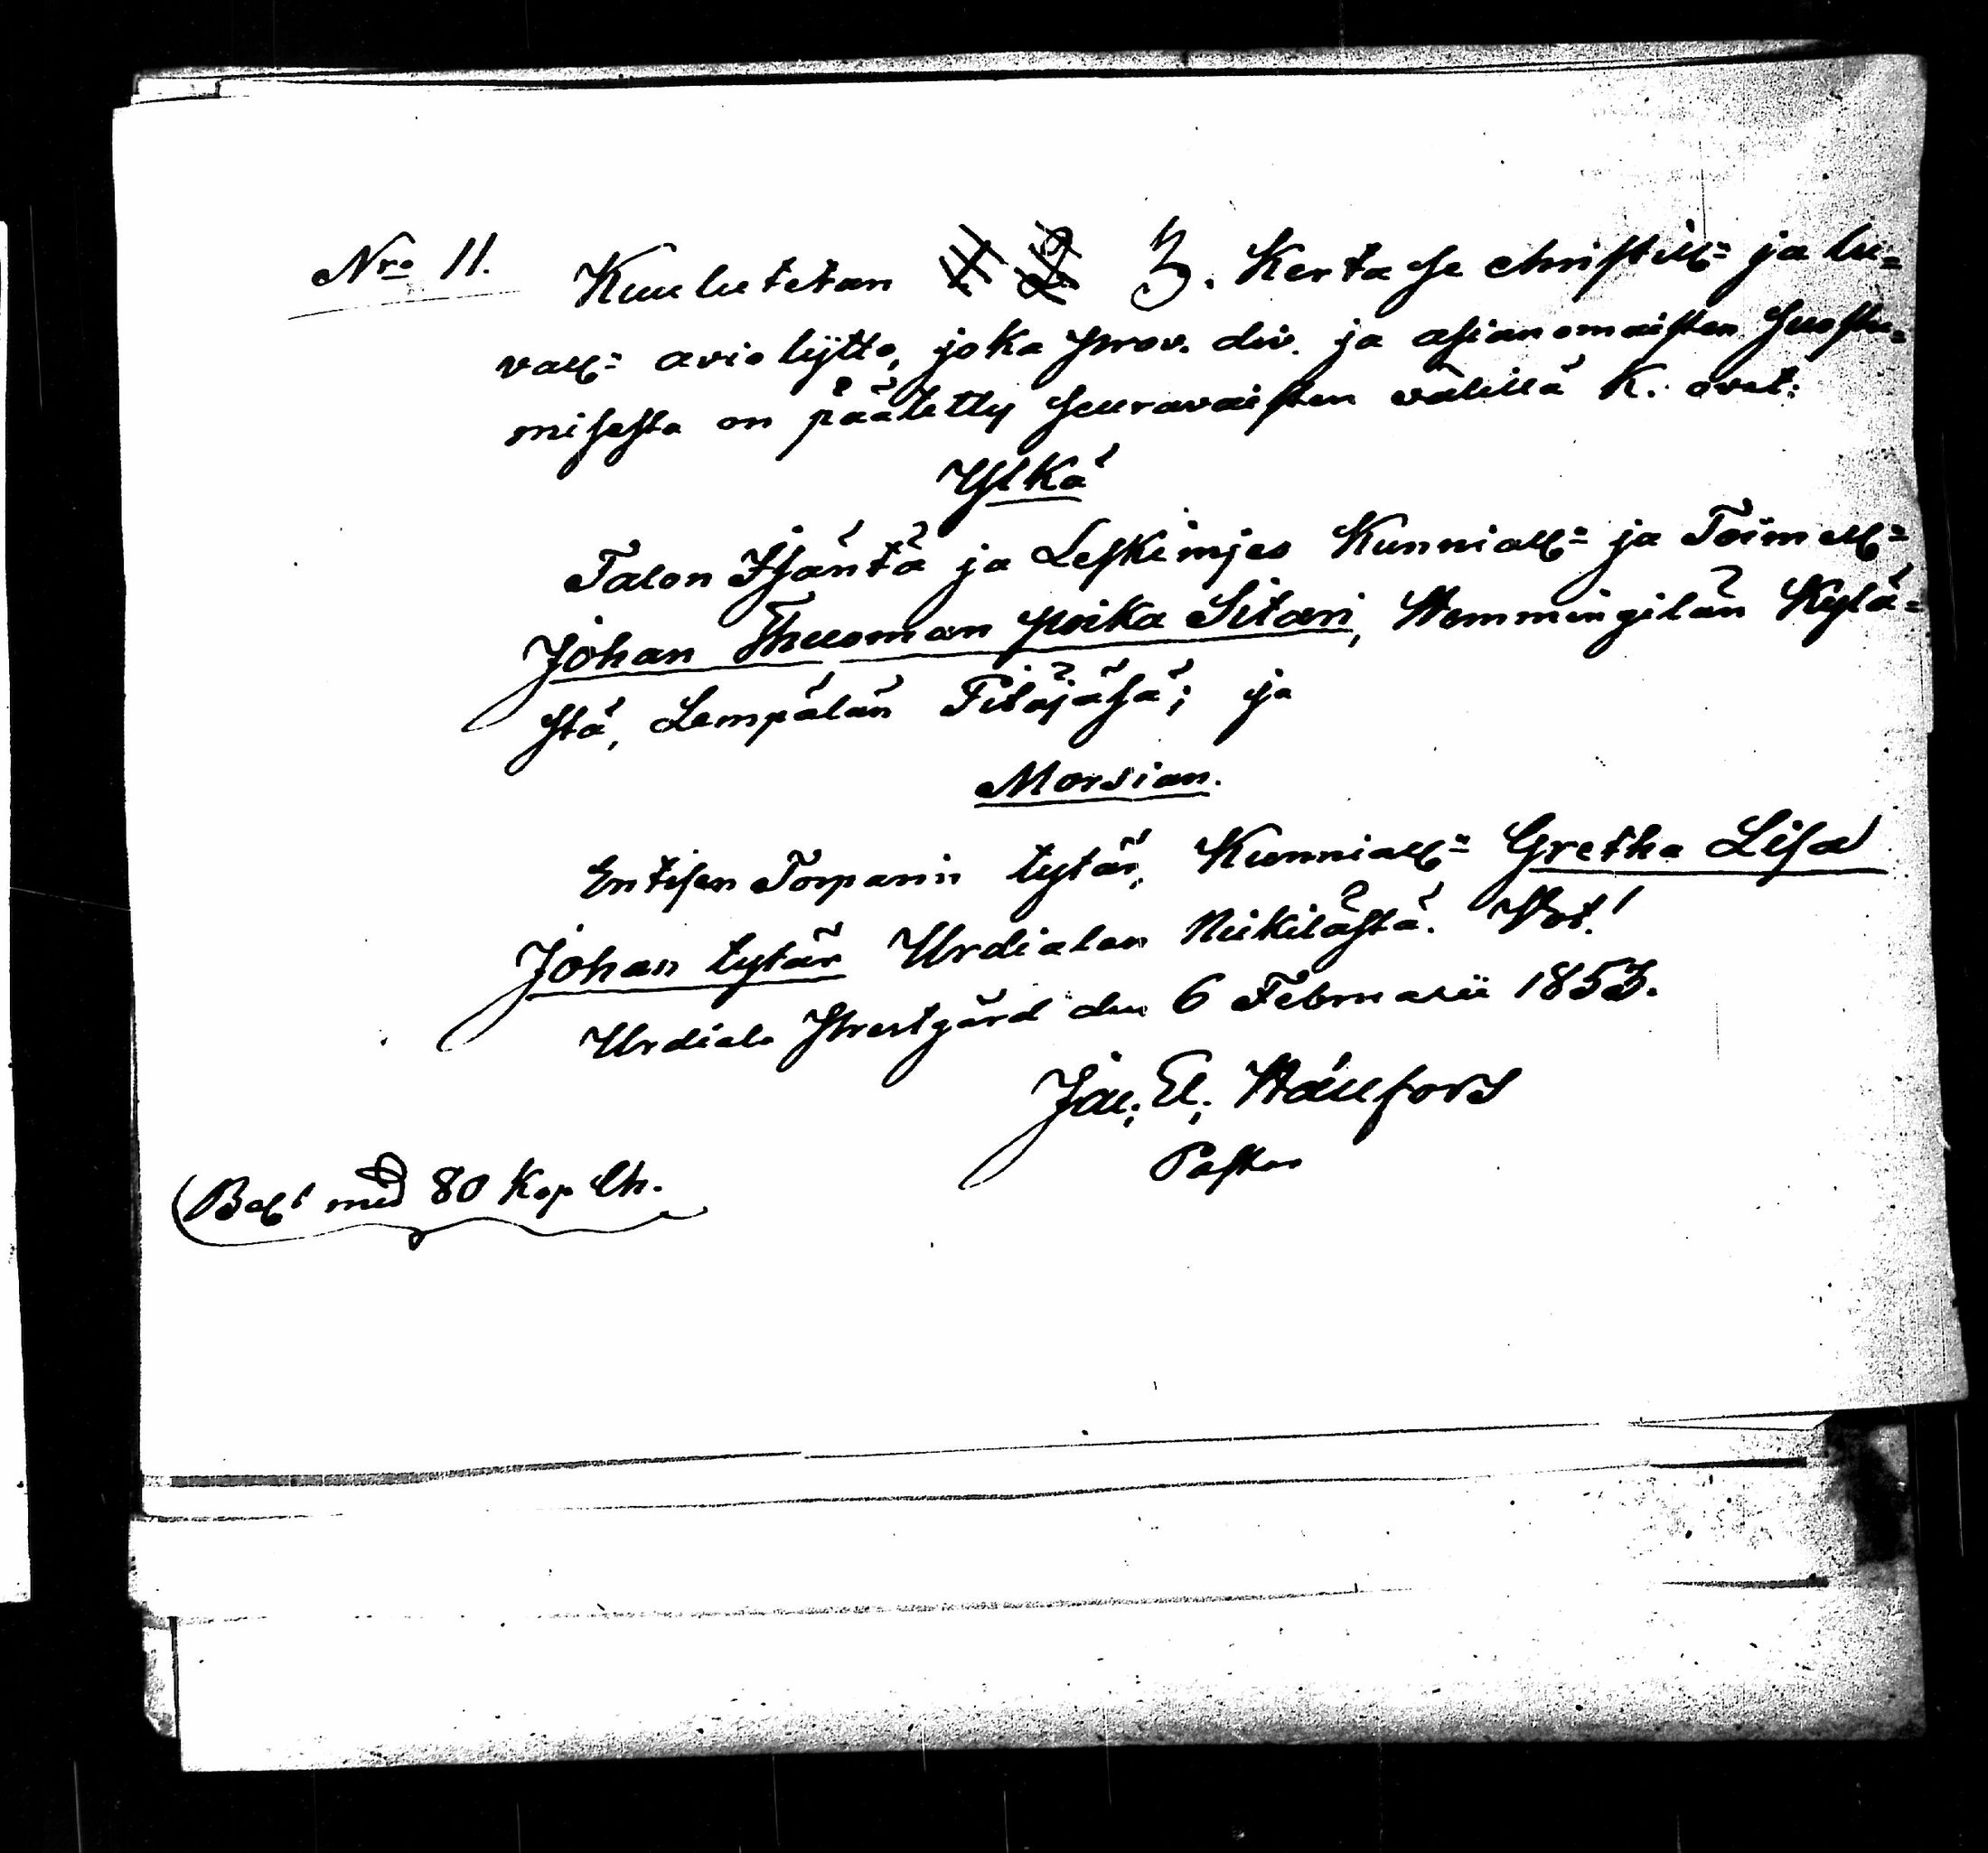 Nro 11. Kuulutetan 3. Kerta se christill= ja lu=
vall= avioliitto, joka prov. div. ja asianomaisten suostu=
misesta on päätetty seuravaisten välillä K. ovat:
Ylkä
Talon Isäntä ja Leskimjes Kunniall= ja Toimell=
Johan Thuoman poika Sitari, Hemmingilän Kylä=
stä, Lempälän Pitäjäsä; ja
Morsian.
Entisen Torparin tytär, Kunniall= Gretha Lisa
Johan tytär Urdialan Nuikilästä.
Urdiala Prestgård den 6 Februarii 1853.
Jac. El. Hällfors
Pastor
Bal! med 80 Kop